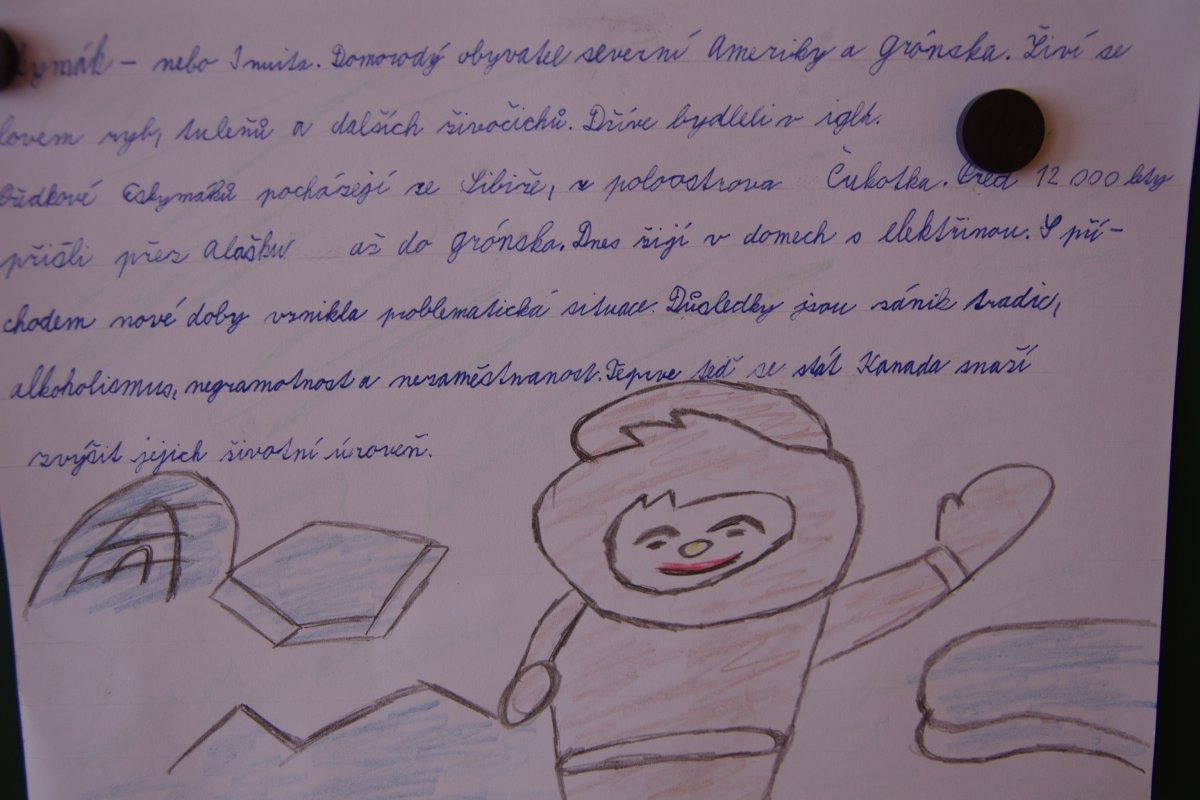 ymák - nebo Inuita. Domorodý obyvatel severní Ameriky a Grónska. Živí se
lovem ryb, tuleňů a dalších živočichů. Dříve bydleli v iglh.
Předkové Eskymáků pocházejí ze Sibiře, z poloostrova Čukotka. Před 12 000 lety
přišli přez Alašku až do Grónska. Dnes žijí v domech s elektřinou. S pří-
chodem nové doby vznikla problematická situace. Důsledky jsou zánik tradic,
alkoholismus, negramotnost a nezaměstnanost. Teprve teď se stát Kanada snaží
zvýšit jejich životní úroveň.